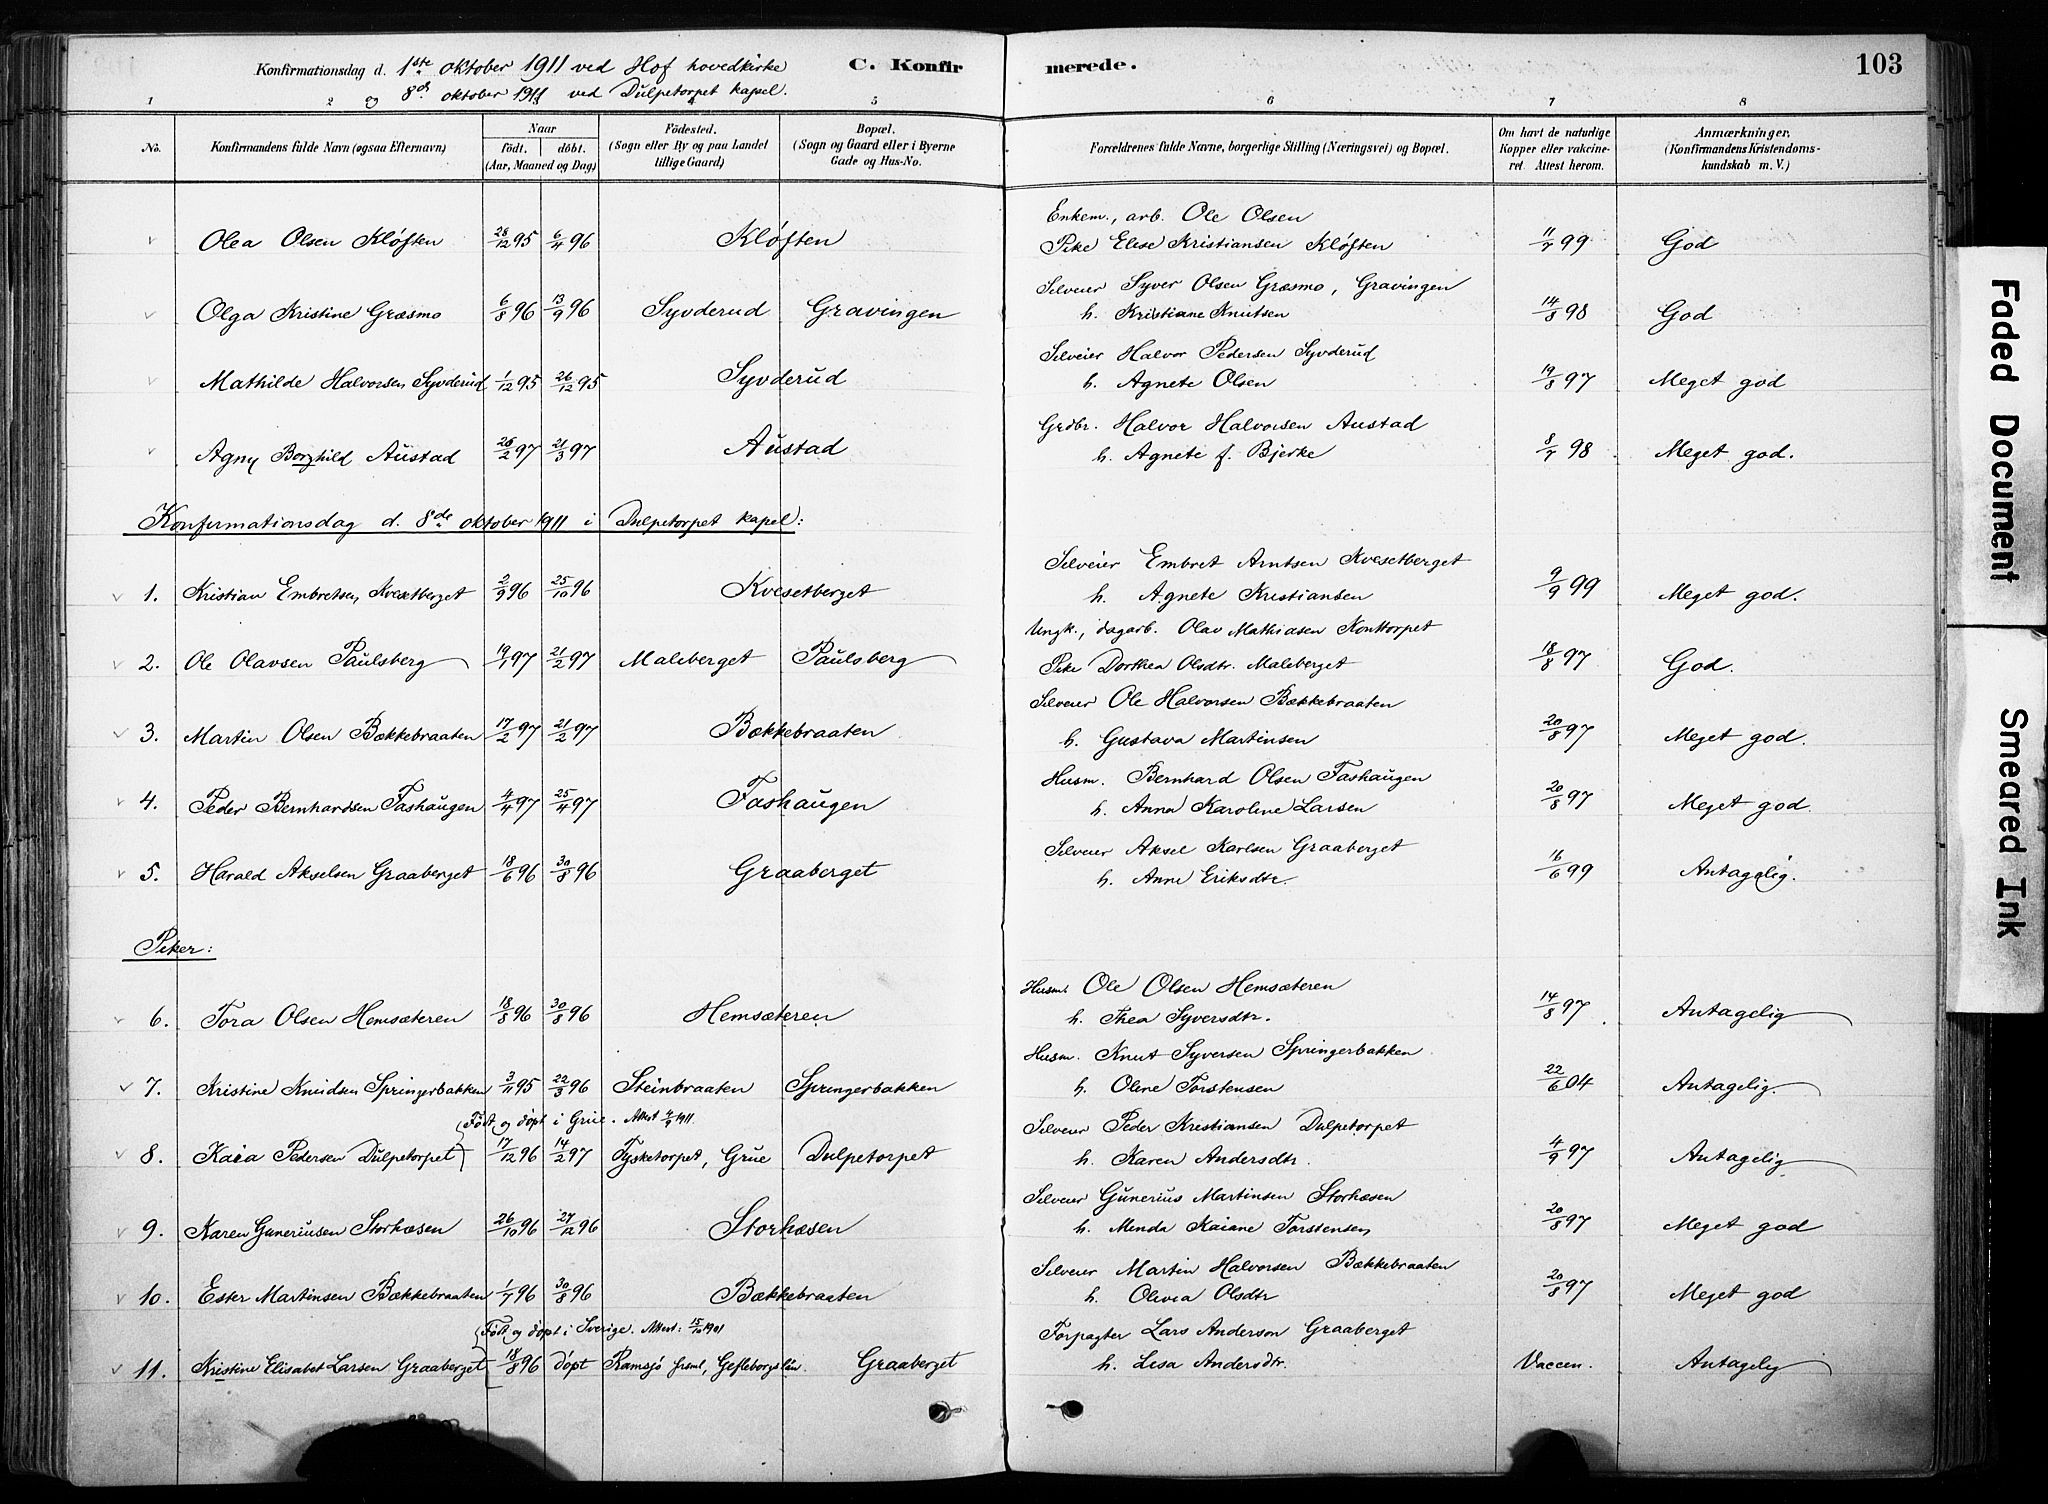 Konfirmationsdag d. 1ste oktober 1911 ved Hof hovedkirke C. Konfirmerede. 103
og 8de oktober 1911 ved Dulpetorpet kapel.
1 2 3 4 5 6 7 8
No. Konfirmandens fulde Navn (ogsaa Efternavn) Naar födt. döbt. (Aar, Maaned og Dag) Födested. (Sogn eller By og paa Landet tillige Gaard) Bopæl. (Sogn og Gaard eller i Byerne Gade og Hus-No. Forældrenes fulde Navne, borgerlige Stilling (Næringsvei) og Bopæl. Om havt de naturlige Kopper eller vakcineret. Attest herom. Anmærkninger, (Konfirmandens Kristendomskundskab m. V.)
Enkem., arb. Ole Olsen
Olea Olsen Kløften 28/12 95 6/4 96 Kløften Pike Elise Kristiansen Kløften 11/7 99 God
Selveier Syver Olsen Græsmo, Gravingen
Olga Kristine Græsmo 6/8 96 13/9 96 Syvderud Gravingen h. Kristiane Knutsen 14/8 98 God
Selveier Halvor Pedersen Syvderud
Mathilde Halvorsen Syvderud 1/12 95 26/12 95 Syvderud h. Agnete Olsen 19/8 97 Meget god
Grdbr. Halvor Halvorsen Austad
Agny Borghild Austad 26/2 97 21/3 97 Austad h. Agnete f. Bjerke 8/7 98 Meget god.
Konfirmationsdag d. 8de oktober 1911 i Dulpetorpet kapel:
Selveier Embret Arntsen Kvesetberget
1. Kristian Embretsen Kvesetberget 2/9 96 25/10 96 Kvesetberget h. Agnete Kristiansen 9/9 99 Meget god.
Ungk., dagarb. Olav Mathiasen Konttorpet
2. Ole Olavsen Paulsberg 19/1 97 21/2 97 Maleberget Paulsberg Pike Dorthea Olsdtr. Maleberget 18/8 97 God.
Selveier Ole Halvorsen Bækkebraaten
3. Martin Olsen Bækkebraaten 17/2 97 21/2 97 Bækkebraaten h. Gustava Martinsen 20/8 97 Meget god.
Husm. Bernhard Olsen Fashaugen
4. Peder Bernhardsen Fashaugen 4/4 97 25/4 97 Fashaugen h. Anna Karoline Larsen 20/8 97 Meget god.
Selveier Aksel Karlsen Graaberget
5. Harald Akselsen Graaberget 18/6 96 30/8 96 Graaberget h. Anne Eriksdtr. 16/6 99 Antagelig.
Piker:
Husm. Ole Olsen Hemsæteren
6. Tora Olsen Hemsæteren 18/8 96 30/8 96 Hemsæteren h. Thea Syversdtr. 14/8 97 Antagelig
Husm. Knut Syversen Springerbakken
7. Kristine Knudsen Springerbakken 3/11 95 22/3 96 Steinbraaten Springerbakken h. Oline Torstensen 22/6 04 Antagelig.
Født og døpt i Grue. Attest 4/9 1911. Selveier Peder Kristiansen Dulpetorpet
8. Kaia Pedersen Dulpetorpet 17/12 96 14/2 97 Tysketorpet, Grue Dulpetorpet h. Karen Andersdtr. 4/9 97 Antagelig
Selveier Gunerius Martinsen Storhæsen
9. Karen Guneriusen Storhæsen 26/10 96 27/12 96 Storhæsen h. Menda Kaiane Torstensen 20/8 97 Meget god
Selveier Martin Halvorsen Bækkebraaten
10. Ester Martinsen Bækkebraaten 1/7 96 30/8 96 Bækkebraaten h. Olivia Olsdtr 20/8 97 Meget god
Født og døpt i Sverige. Attest: 15/10 1901 Forpagter Lars Anderson Graaberget
11. Kristine Elisabet Larsen Graaberget 18/8 96 døpt Ramsjø frsml, Gefleborgslän. Graaberget h. Lisa Andersdtr. Vaccen. Antagelig
Faded Document
Smeared Ink